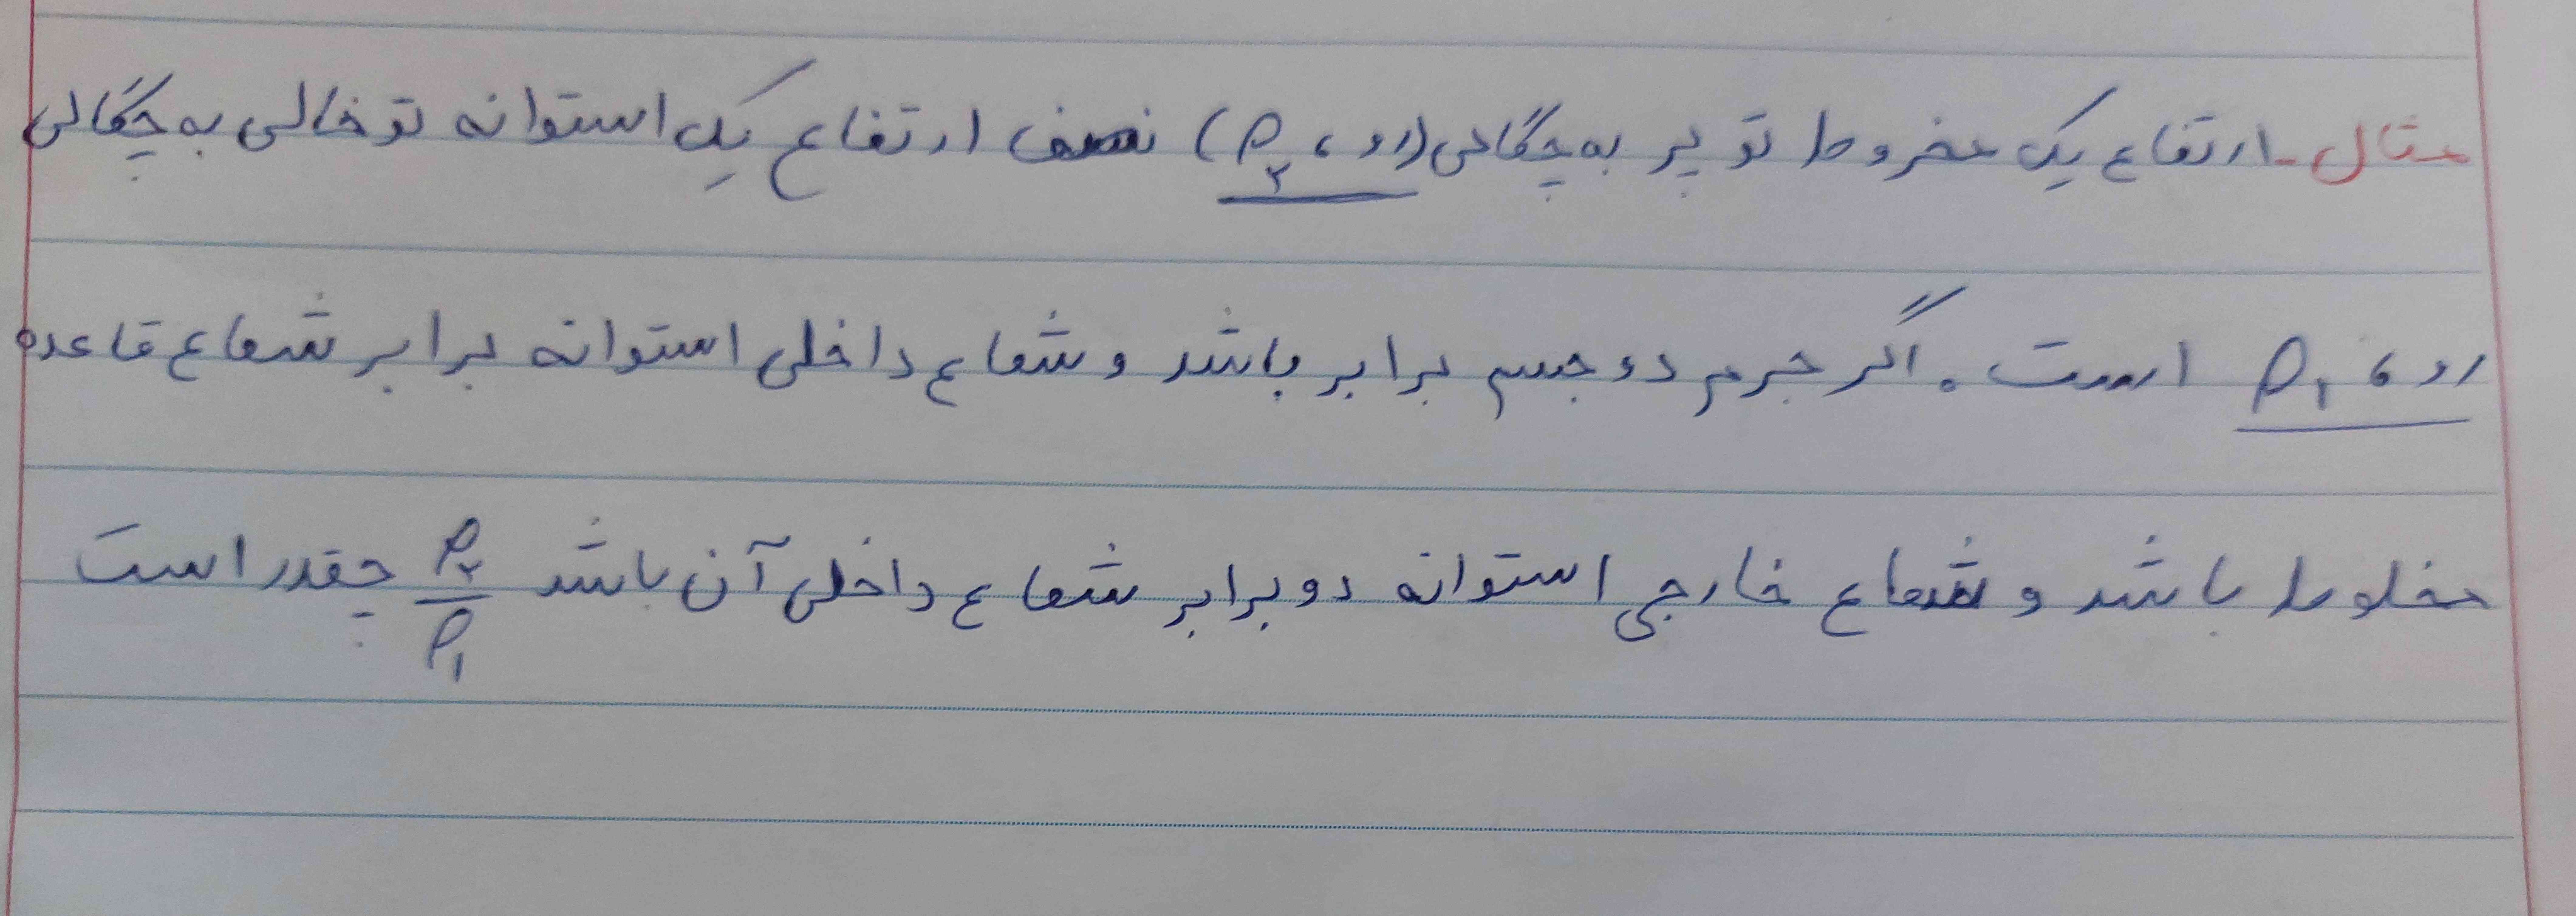 مثال - ارتفاع یک مخروط تو پر به چگالی (رو، ρ۲) نصف ارتفاع یک استوانه تو خالی به چگالی
رو، ρ۱ است. اگر جرم دو جسم برابر باشد و شعاع داخلی استوانه برابر شعاع قاعده
مخلوط باشد و شعاع خارجی استوانه دو برابر شعاع داخلی آن باشد ρ۲/ρ۱ چقدر است